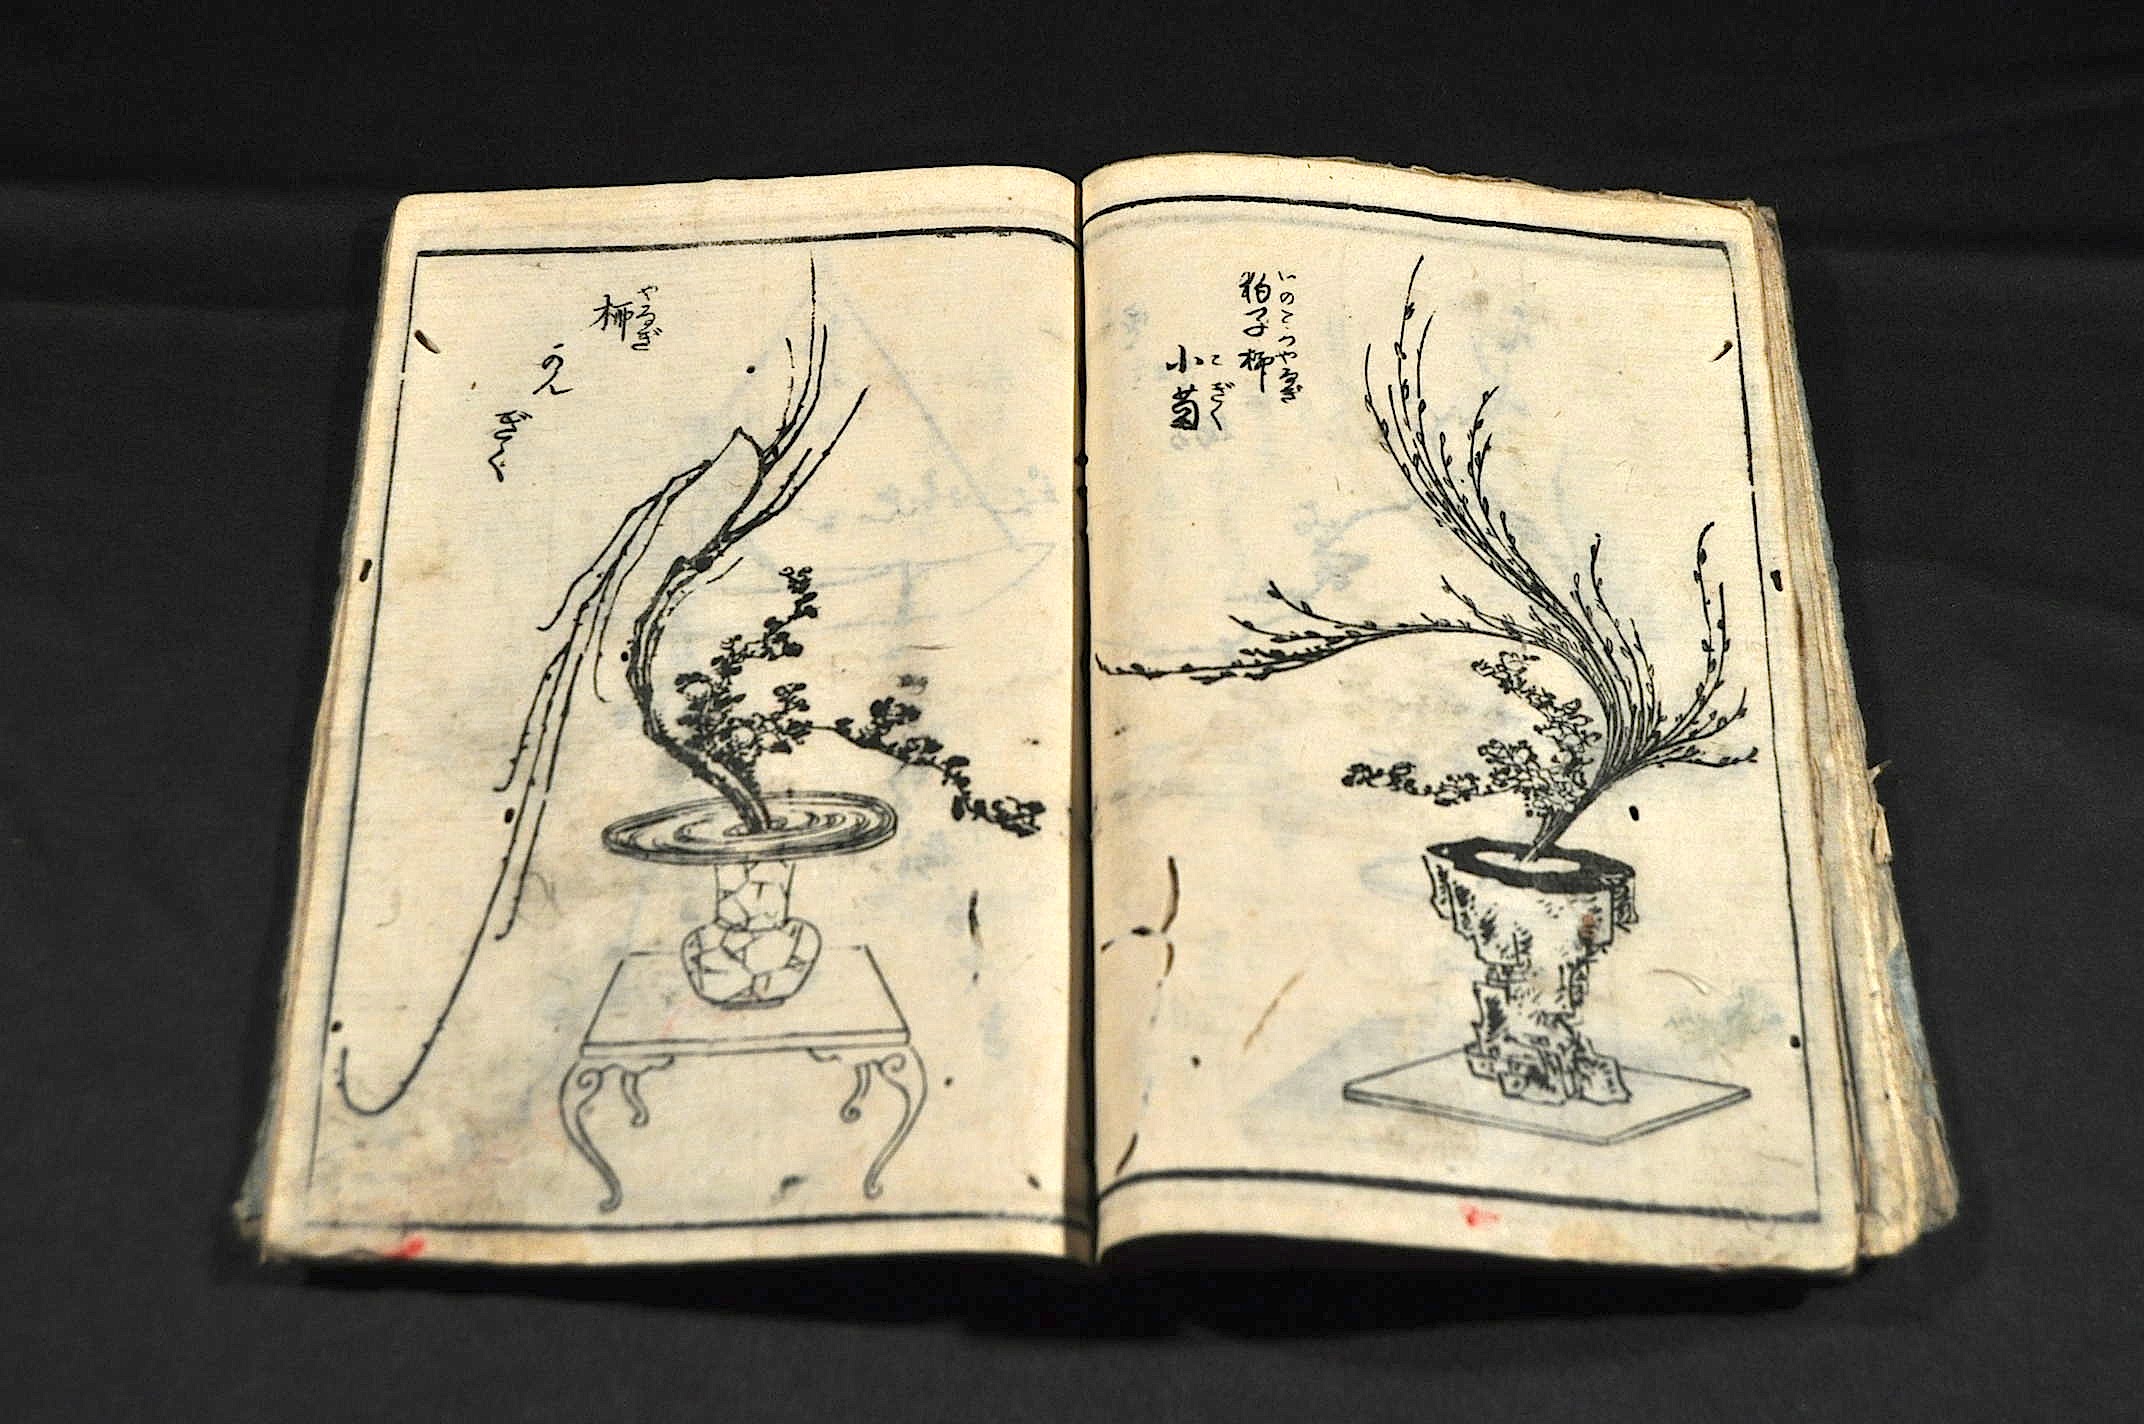 いのころやなぎ
狗子柳
こぎく
小菊
やなぎ
柳
かん
ぎく